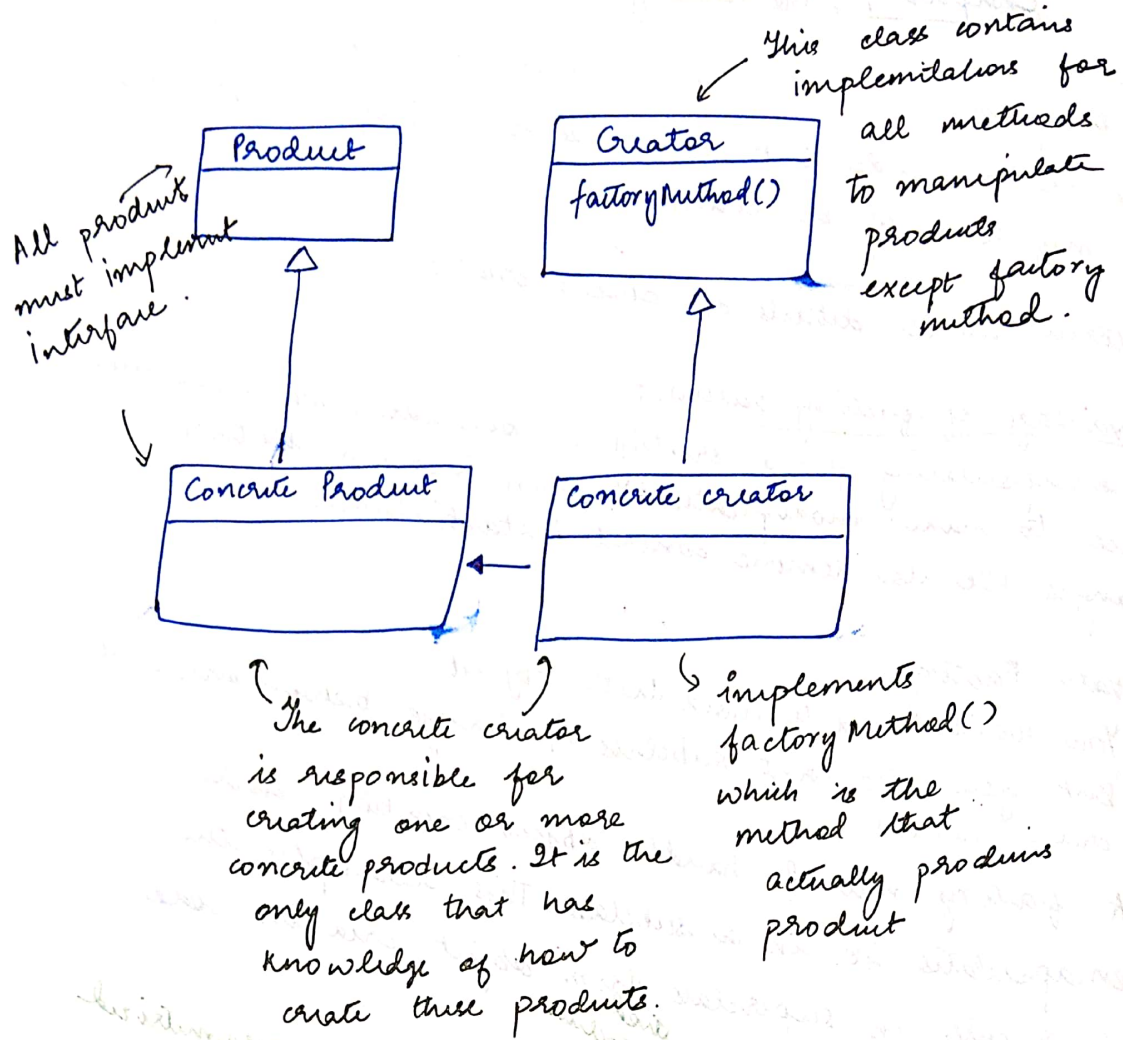 This class contains
implemitations for
all methods
to manipulate
products
except factory
method.
Product
Creator
factoryMethod()
All product
must implement
interface.
Concrete Product
Concrete creator
The concrete creator
is responsible for
creating one or more
concrete products. It is the
only class that has
knowledge of how to
create these products.
implements
factory Method()
which is the
method that
actually produces
product